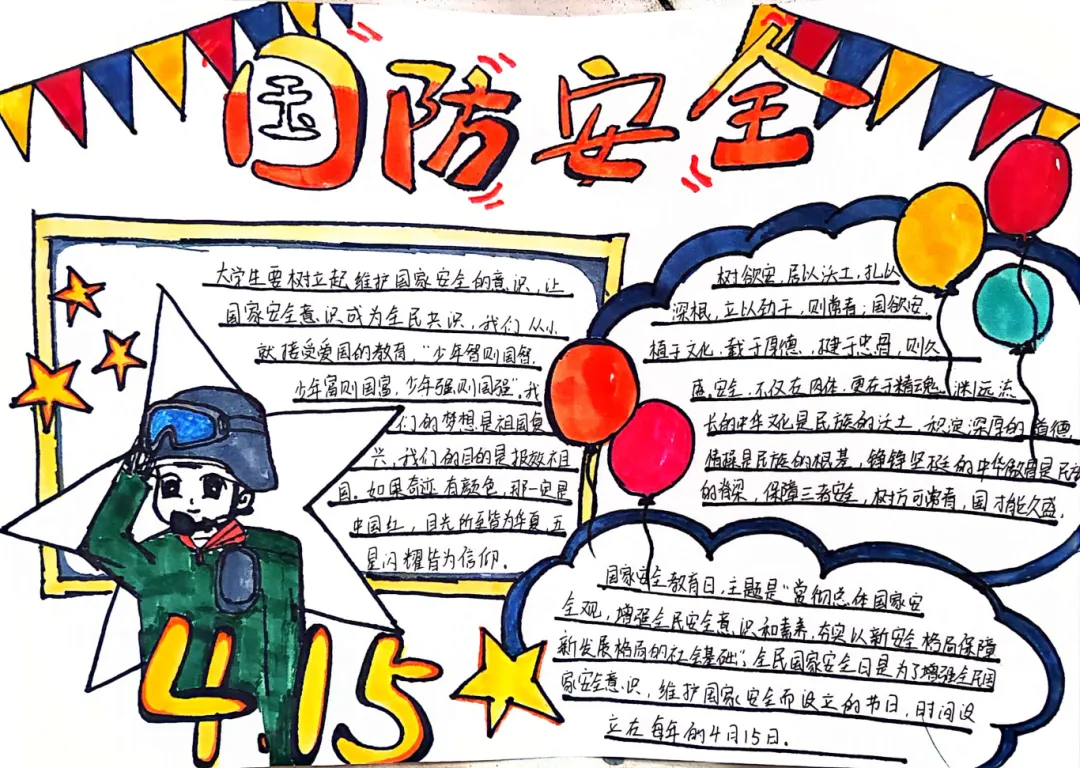 国防安全
大学生要树立起维护国家安全的意识，让
国家安全意识成为全民共识，我们从小
就接受爱国的教育，“少年智则国智，
少年富则国富，少年强则国强”。我
们的梦想是祖国复
兴，我们的目的是报效祖
国。如果奇迹有颜色，那一定是
中国红，目光所至皆为华夏，五
星闪耀皆为信仰。
树欲安，居以沃土，扎以
深根，立以劲干，则常青；国欲安，
植于文化，载于厚德，健于忠骨，则久
盛。安全，不仅在肉体，更在于精魂。渊远流
长的中华文化是民族的沃土，积淀深厚的道德
情操是民族的根基，铮铮坚挺的中华傲骨是民族
的脊梁，保障三者安全，树方可常青，国才能久盛。
国家安全教育日，主题是“贯彻总体国家安
全观，增强全民安全意识和素养，夯实以新安全格局保障
新发展格局的社会基础”；全民国家安全日是为了增强全民国
家安全意识，维护国家安全而设立的节日，时间设
立在每年的4月15日。
4.15